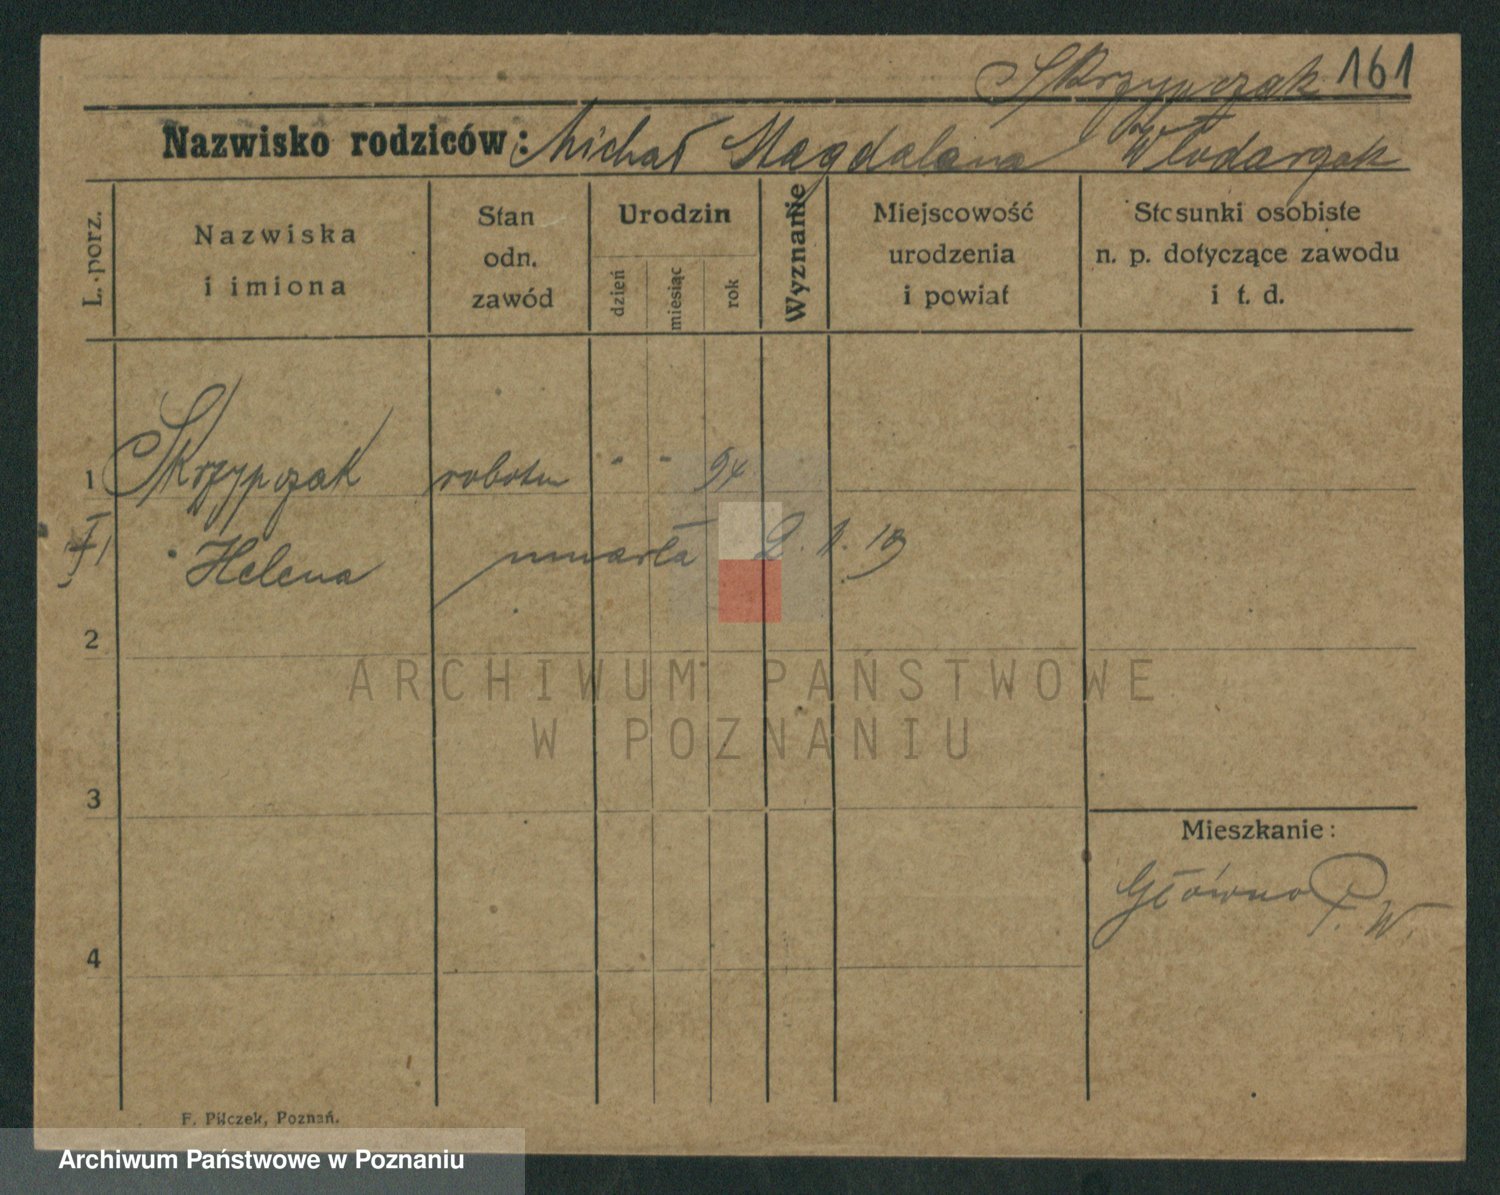 Skrzypczak 161
Nazwisko rodziców: Michał Magdalena Włodarczak
L. porz.
Nazwiska
i imiona
Stan
odn.
zawód
Urodzin
dzień
miesiąc
rok
Wyznanie
Miejscowość
urodzenia
i powiat
Stosunki osobiste
n. p. dotyczące zawodu
i t. d.
1 Skrzypczak robotn - - 94
Helena umarła 2. 1. 19
2
ARCHIWUM PAŃSTWOWE
W POZNANIU
3
Mieszkanie:
Główno P. W.
4
F. Pilczek, Poznań.
Archiwum Państwowe w Poznaniu